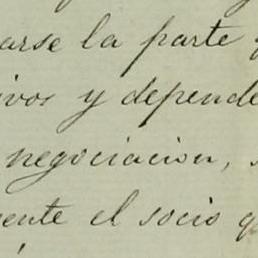 arse la parte
ivos y depende
negociacion,
ente el socio q